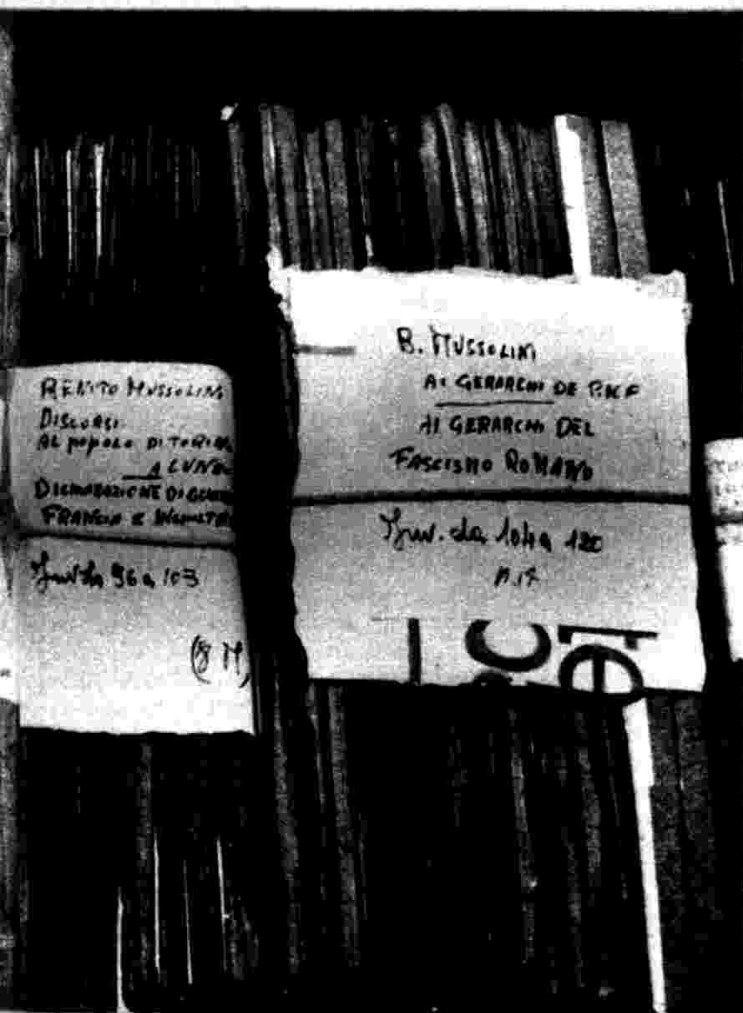 BENITO MUSSOLINI
DISCORSI
AL POPOLO DI TORINO
A CUNEO
DICHIARAZIONE DI
FRANCIA E
Inv. da 96 a 103
(8
B. MUSSOLINI
AI GERARCHI DE P.N.F
AI GERARCHI DEL
FASCISMO ROMANO
Inv. da 104 a 120
N. 17